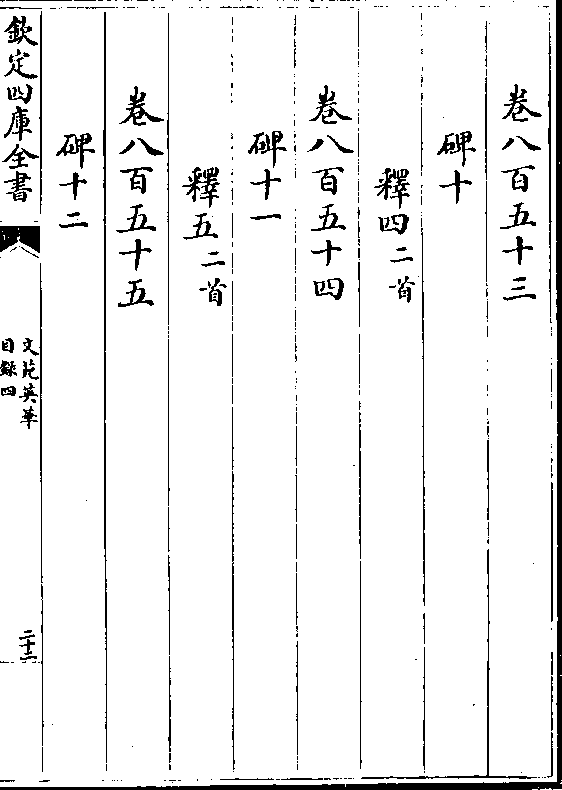 卷八百五十三
碑十
釋四二首
卷八百五十四
碑十一
釋五二首
卷八百五十五
碑十二
欽定四庫全書
文苑英華
目錄四
二十二